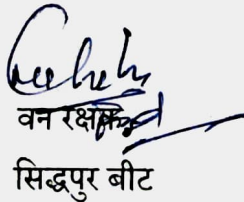 वन रक्षक
सिद्धपुर बीट